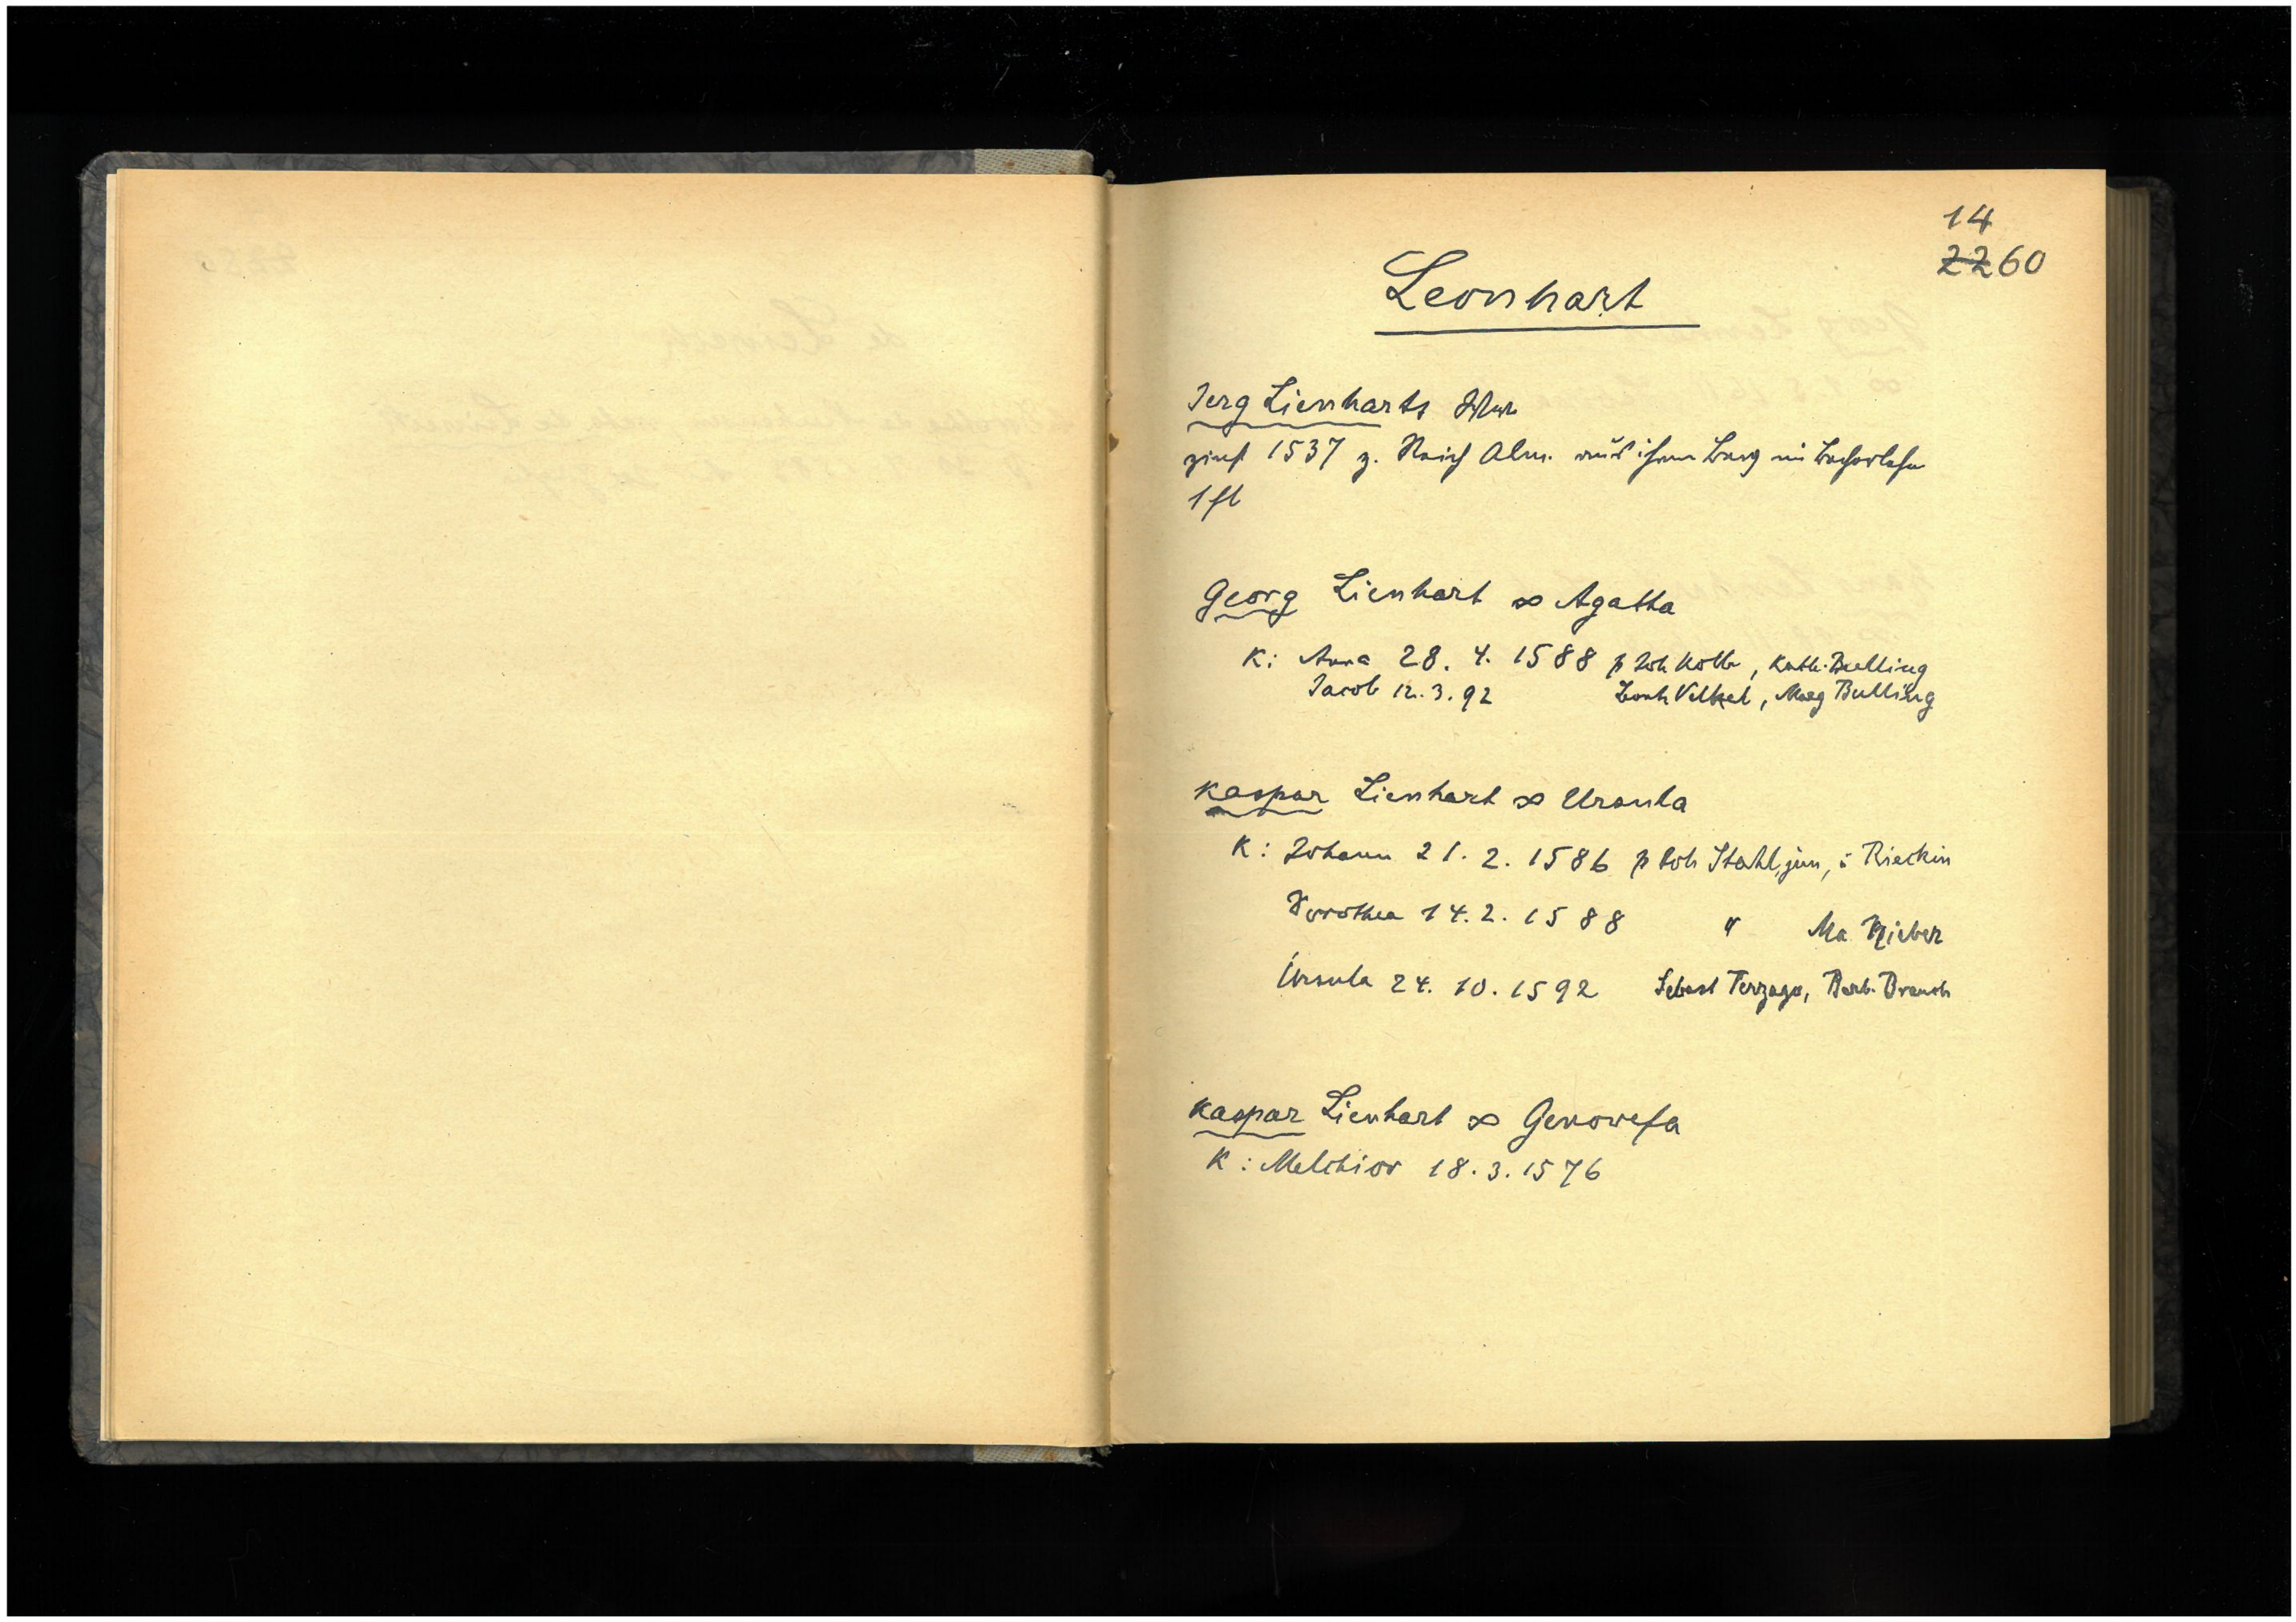 14
2260
Leonhart
Jerg Lienharts Wwe
zinst 1537 z. Reich Alm. aus ihrem
1 fl
Georg Lienhart ∞ Agatha
K: Anna 28. 4. 1588 p Joh Kolb, Kath. Bulling
Jacob 12. 3. 92 Volkel, Marg Bulling
Kaspar Lienhart ∞ Ursula
K: Johann 21. 2. 1586 p Joh Stahl, jun, : Rieckin
Dorothea 14. 2. 1588 " Ma Rieber
Ursula 24. 10. 1592 Sebast Terzago, Barb. Branch
Kaspar Lienhart ∞ Genovefa
K: Melchior 18. 3. 1576